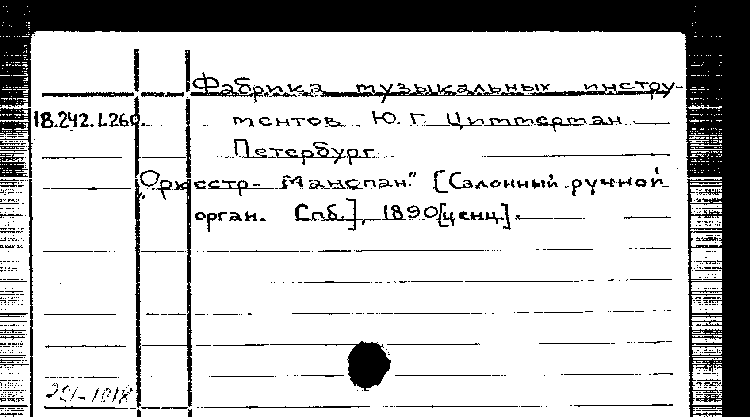 Фабрика музыкальных инстру-
18.242.1.260. ментов Ю.Г. Циммерман
Петербург
"Оркестр- Манопан." [Салонный ручной
орган. Спб.], 1890[ценз.].
251-1018